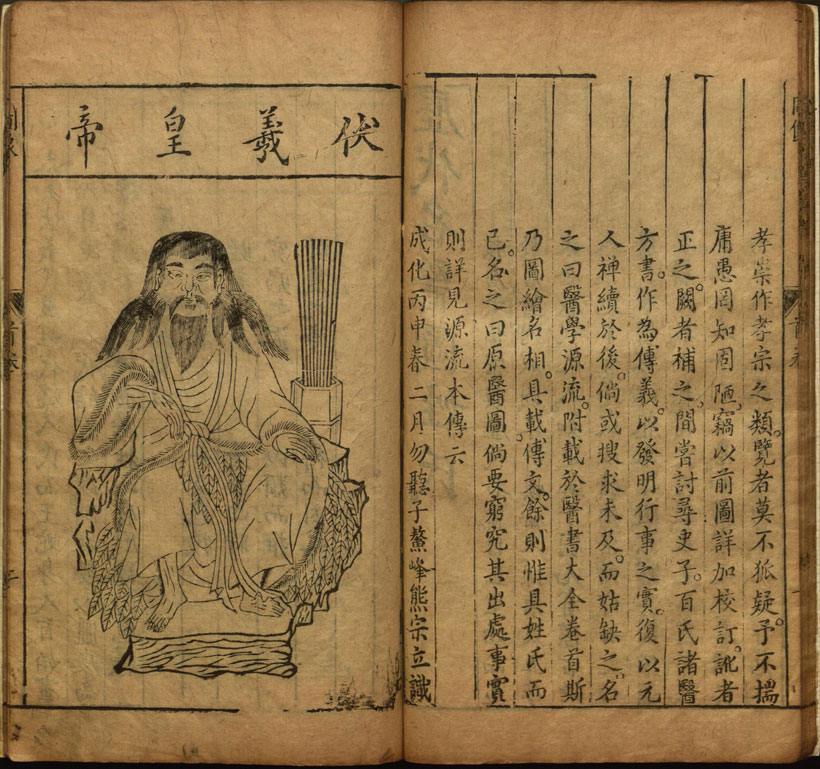 孝崇作孝宗之類。覽者莫不狐疑。予不揣
庸愚罔知固陋。竊以前圖詳加校訂。訛者
正之。闕者補之。間嘗討尋史子。百氏諸醫
方書。作為傳義。以發明行事之實。復以元
人禅續於後。倘或搜求未及。而姑缺之。名
之曰醫學源流。附載於醫書大全卷首斯
乃圖繪名相。具載傳文。餘則惟具姓氏而
已。名之曰原醫圖。倘要窮究其出處事實
則詳見源流本傳云
成化丙申春二月勿聽子鰲峰熊宗立識
伏羲皇帝